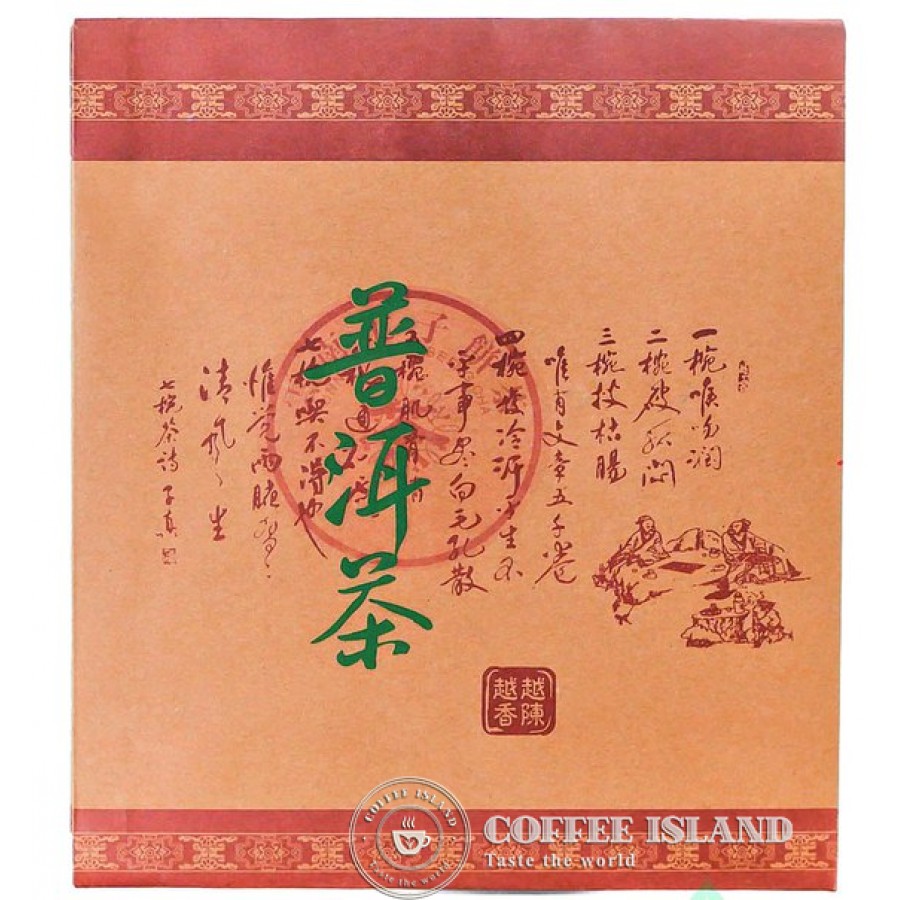 普洱茶
一椀喉吻潤
二椀破孤悶
三椀搜枯腸
唯有文章五千卷
四椀發汗平生不
平事盡向毛孔散
椀肌骨
通
七椀喫不得也
惟覺兩腋習習
清風生
七椀茶詩
子餅
越陳
越香
COFFEE ISLAND
Taste the world
COFFEE ISLAND
Taste the world